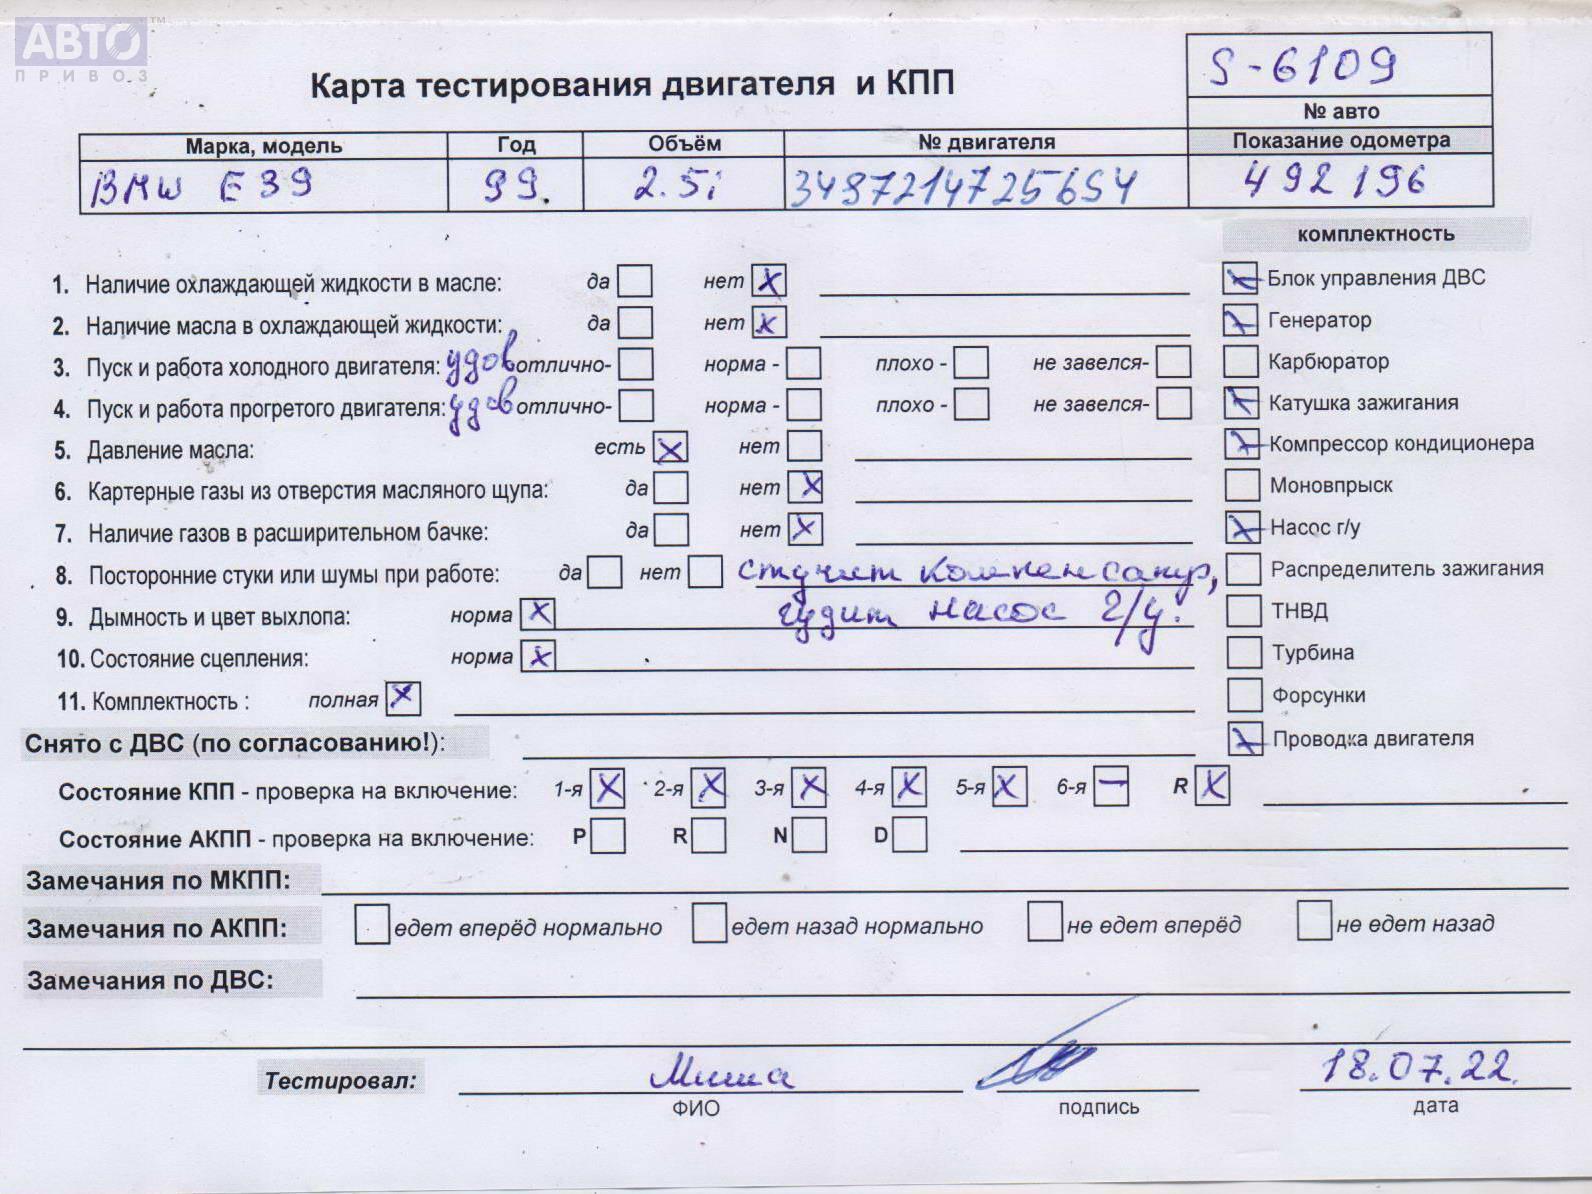 АВТО™
ПРИВОЗ
S-6109
Карта тестирования двигателя и КПП
№ авто
Марка, модель Год Объём № двигателя Показание одометра
BMW E39 99. 2.5i 34872147256S4 492196
комплектность
1. Наличие охлаждающей жидкости в масле: да нет x
Блок управления ДВС
2. Наличие масла в охлаждающей жидкости: да нет x
Генератор
3. Пуск и работа холодного двигателя: удов отлично- норма - плохо - не завелся-
Карбюратор
4. Пуск и работа прогретого двигателя: удов отлично- норма - плохо - не завелся-
Катушка зажигания
5. Давление масла: есть x нет
Компрессор кондиционера
6. Картерные газы из отверстия масляного щупа: да нет x
Моновпрыск
7. Наличие газов в расширительном бачке: да нет x
Насос г/у
8. Посторонние стуки или шумы при работе: да нет стучит компенсатор,
Распределитель зажигания
9. Дымность и цвет выхлопа: норма x гудит насос г/у.
ТНВД
10. Состояние сцепления: норма x
Турбина
11. Комплектность : полная x
Форсунки
Снято с ДВС (по согласованию!):
Проводка двигателя
Состояние КПП - проверка на включение: 1-я x 2-я x 3-я x 4-я x 5-я x 6-я – R x
Состояние АКПП - проверка на включение: P R N D
Замечания по МКПП:
Замечания по АКПП: едет вперёд нормально едет назад нормально не едет вперёд не едет назад
Замечания по ДВС:
Тестировал: Миша 18.07.22.
ФИО подпись дата